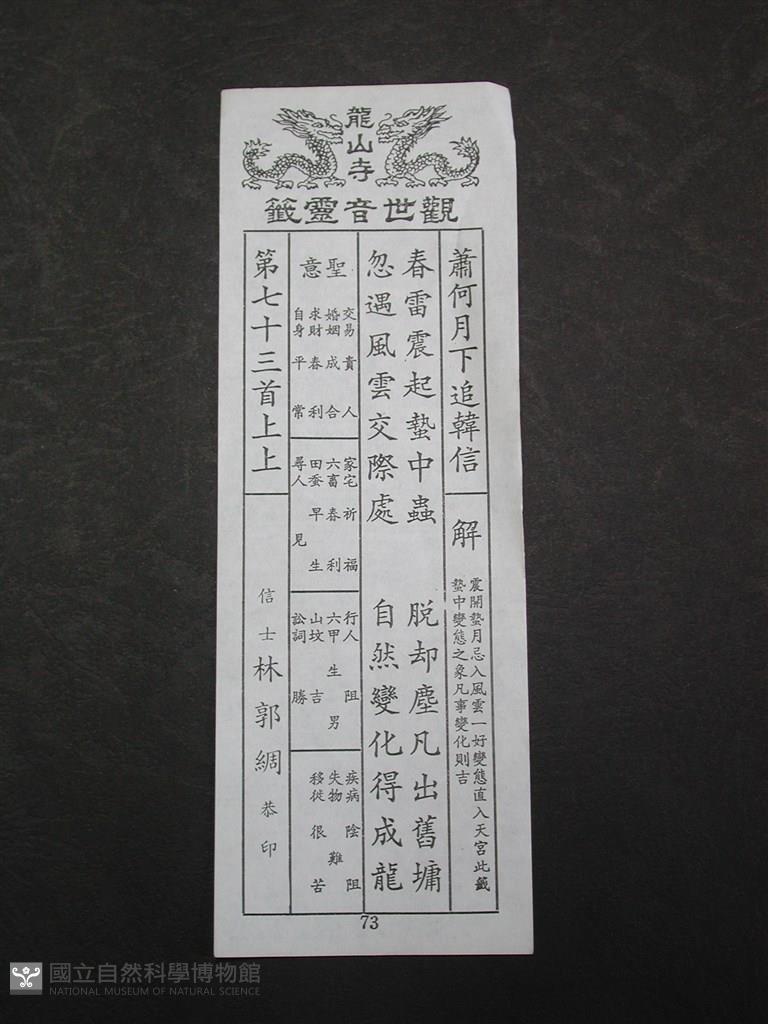 龍山寺
觀世音靈籤
蕭何月下追韓信
解
震開蟄月忌入風雲一好變態直入天宮此籤
蟄中變態之象凡事變化則吉
春雷震起蟄中蟲 脱却塵凡出舊墉
忽遇風雲交際處 自然變化得成龍
聖意
交易貴人
婚姻成合
求財春利
自身平常
家宅祈福
六畜春利
田蚕早生
尋人見
行人阻
六甲生男
山坟吉
訟詞勝
疾病陰阻
失物難
移徙很苦
第七十三首上上
信士林郭綢恭印
73
國立自然科學博物館
NATIONAL MUSEUM OF NATURAL SCIENCE